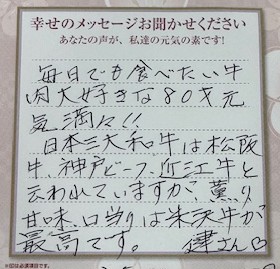 幸せのメッセージお聞かせください
あなたの声が、私達の元気の素です!
毎日でも食べたい牛
肉大好きな80才元
気満々!!
日本三大和牛は松阪
牛、神戸ビーフ、近江牛と
云われていますが、薫り
甘味、口当りは米沢牛が
最高です。 健さん♡
※印は必須項目です。